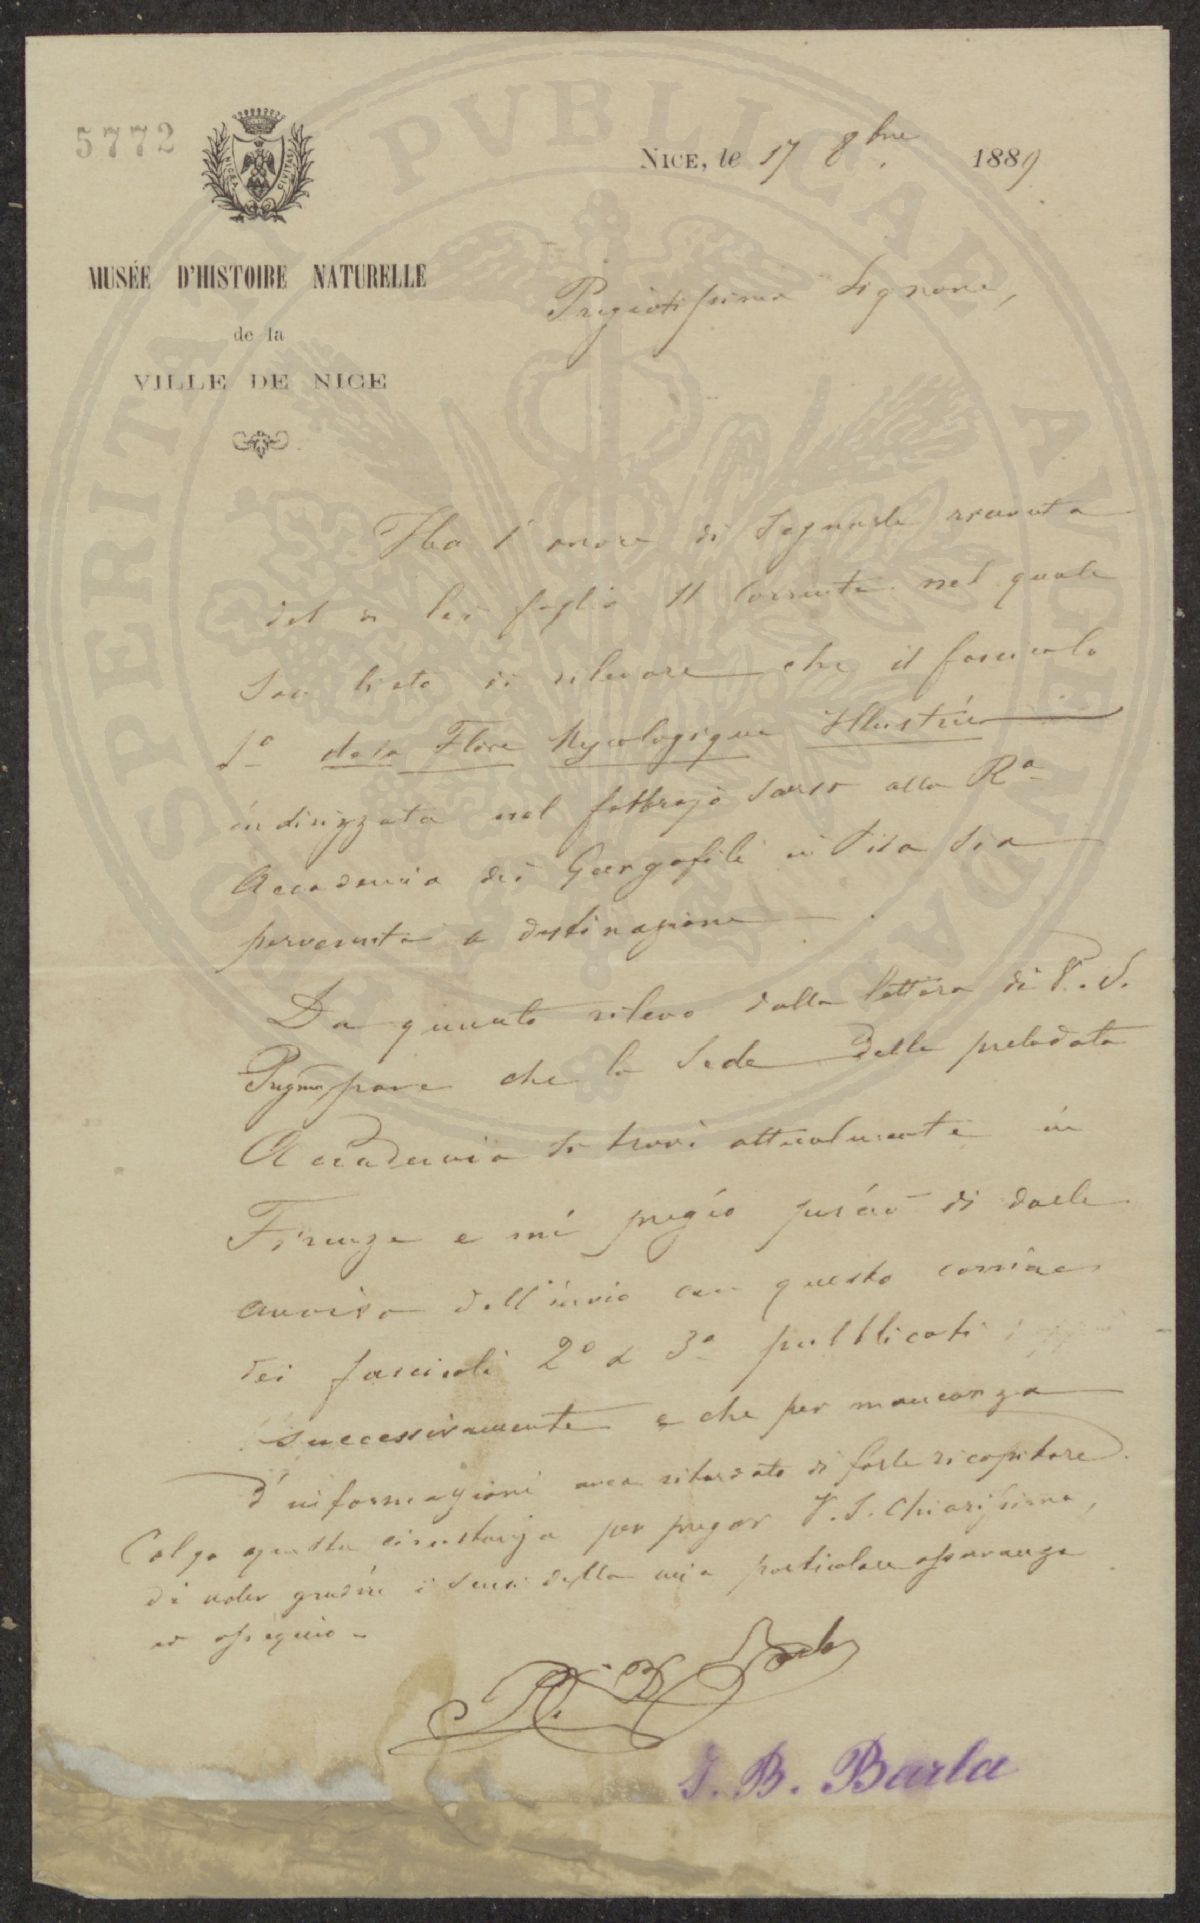 5772
NICE, le 17 8bre 1889
NICÆA CIVITAS
MUSÉE D'HISTOIRE NATURELLE
de la
VILLE DE NICE
Pregiatissimo Signore,
Ho l'onore di segnarle ricevuta
del di lei foglio 11 Corrente nel quale
son lieto di rilevare che il fascicolo
1º de la Flore Mycologique Illustrée
indirizzato nel febbrajo scorso alla Rª
Accademia dei Georgofili in Pisa sia
pervenuto a destinazione.
Da quanto rilevo dalla lettera di V. S.
Pregma pare che la Sede della prelodata
Accademia si trovi attualmente in
Firenze e mi pregio perciò di darle
avviso dell'invio con questo corriere
dei fascicoli 2º e 3º pubblicati
successivamente e che per mancanza
d'informazioni avea ritardato di farle ricapitare.
Colgo questa circostanza per pregar V. S. Chiarissima,
di voler gradire i sensi della mia particolare osservanza
ed ossequio.
J. B. Barla
J. B. Barla
PERITATI PVBLICAE AVGENDAE